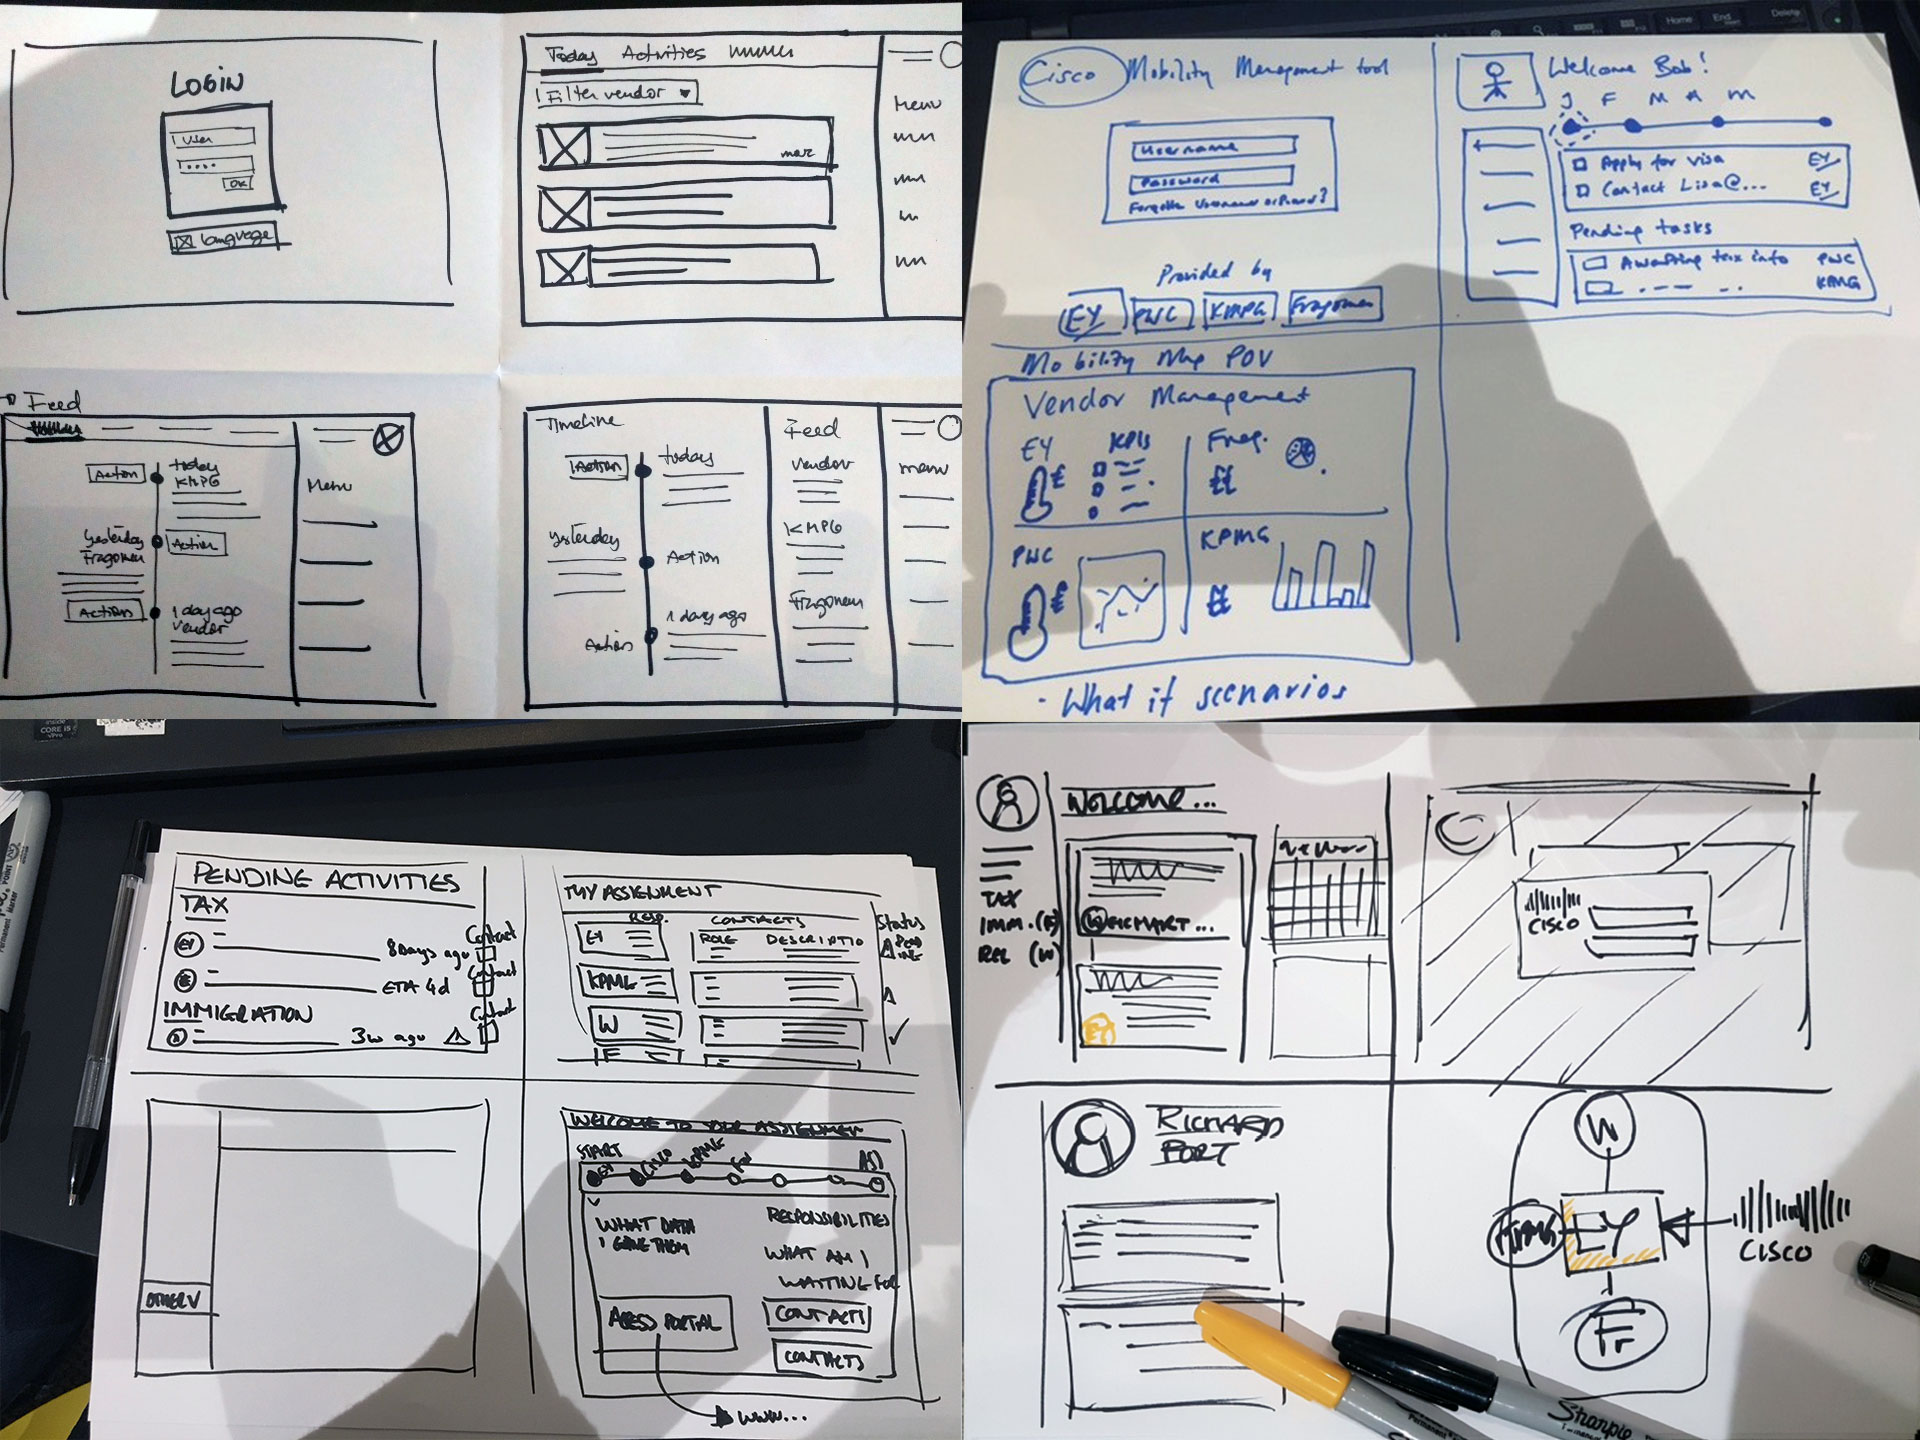 LOGIN
User
OK
Language
Today Activities
Filter vendor
more
Menu
Feed
Action
today
KMPG
Menu
yesterday
Fragomen
Action
Action
1 day ago
vendor
Timeline
Action
today
yesterday
Action
1 day ago
Action
Feed
vendor
KMPG
Fragomen
menu
Home
End
Delete
Cisco Mobility Management tool
Username
Password
Forgotten Username or Password?
Provided by
EY PWC KMPG Fragomen
Welcome Bob!
J F M A M
Apply for visa EY
Contact Lisa@... EY
Pending tasks
Awaiting tax info PWC
KPMG
Mobility Mng POV
Vendor Management
EY KPIs
Frag.
££
PWC
KPMG
££
- What if scenarios
inside
CORE i5
vPro
PENDING ACTIVITIES
TAX
EY
8 Days ago
Contact
ETA 4d
Contact
IMMIGRATION
3w ago
Contact
MY ASSIGNMENT
RESP. CONTACTS
Status
EY
ROLE DESCRIPTIO
PEND
ING
KPMG
W
F
OTHER V
WELCOME TO YOUR ASSIGNMENT
START
EY
CISCO
KPMG
WHAT DATA
I GAVE THEM
RESPONSIBILITIES
WHAT AM I
WAITING FOR
ACCESS PORTAL
CONTACTS
CONTACTS
WWW...
WELCOME...
TAX
IMM. (F)
REL (W)
W EICHART...
EY
CISCO
RICHARD
PORT
W
EY
CISCO
Fr
Sharpie